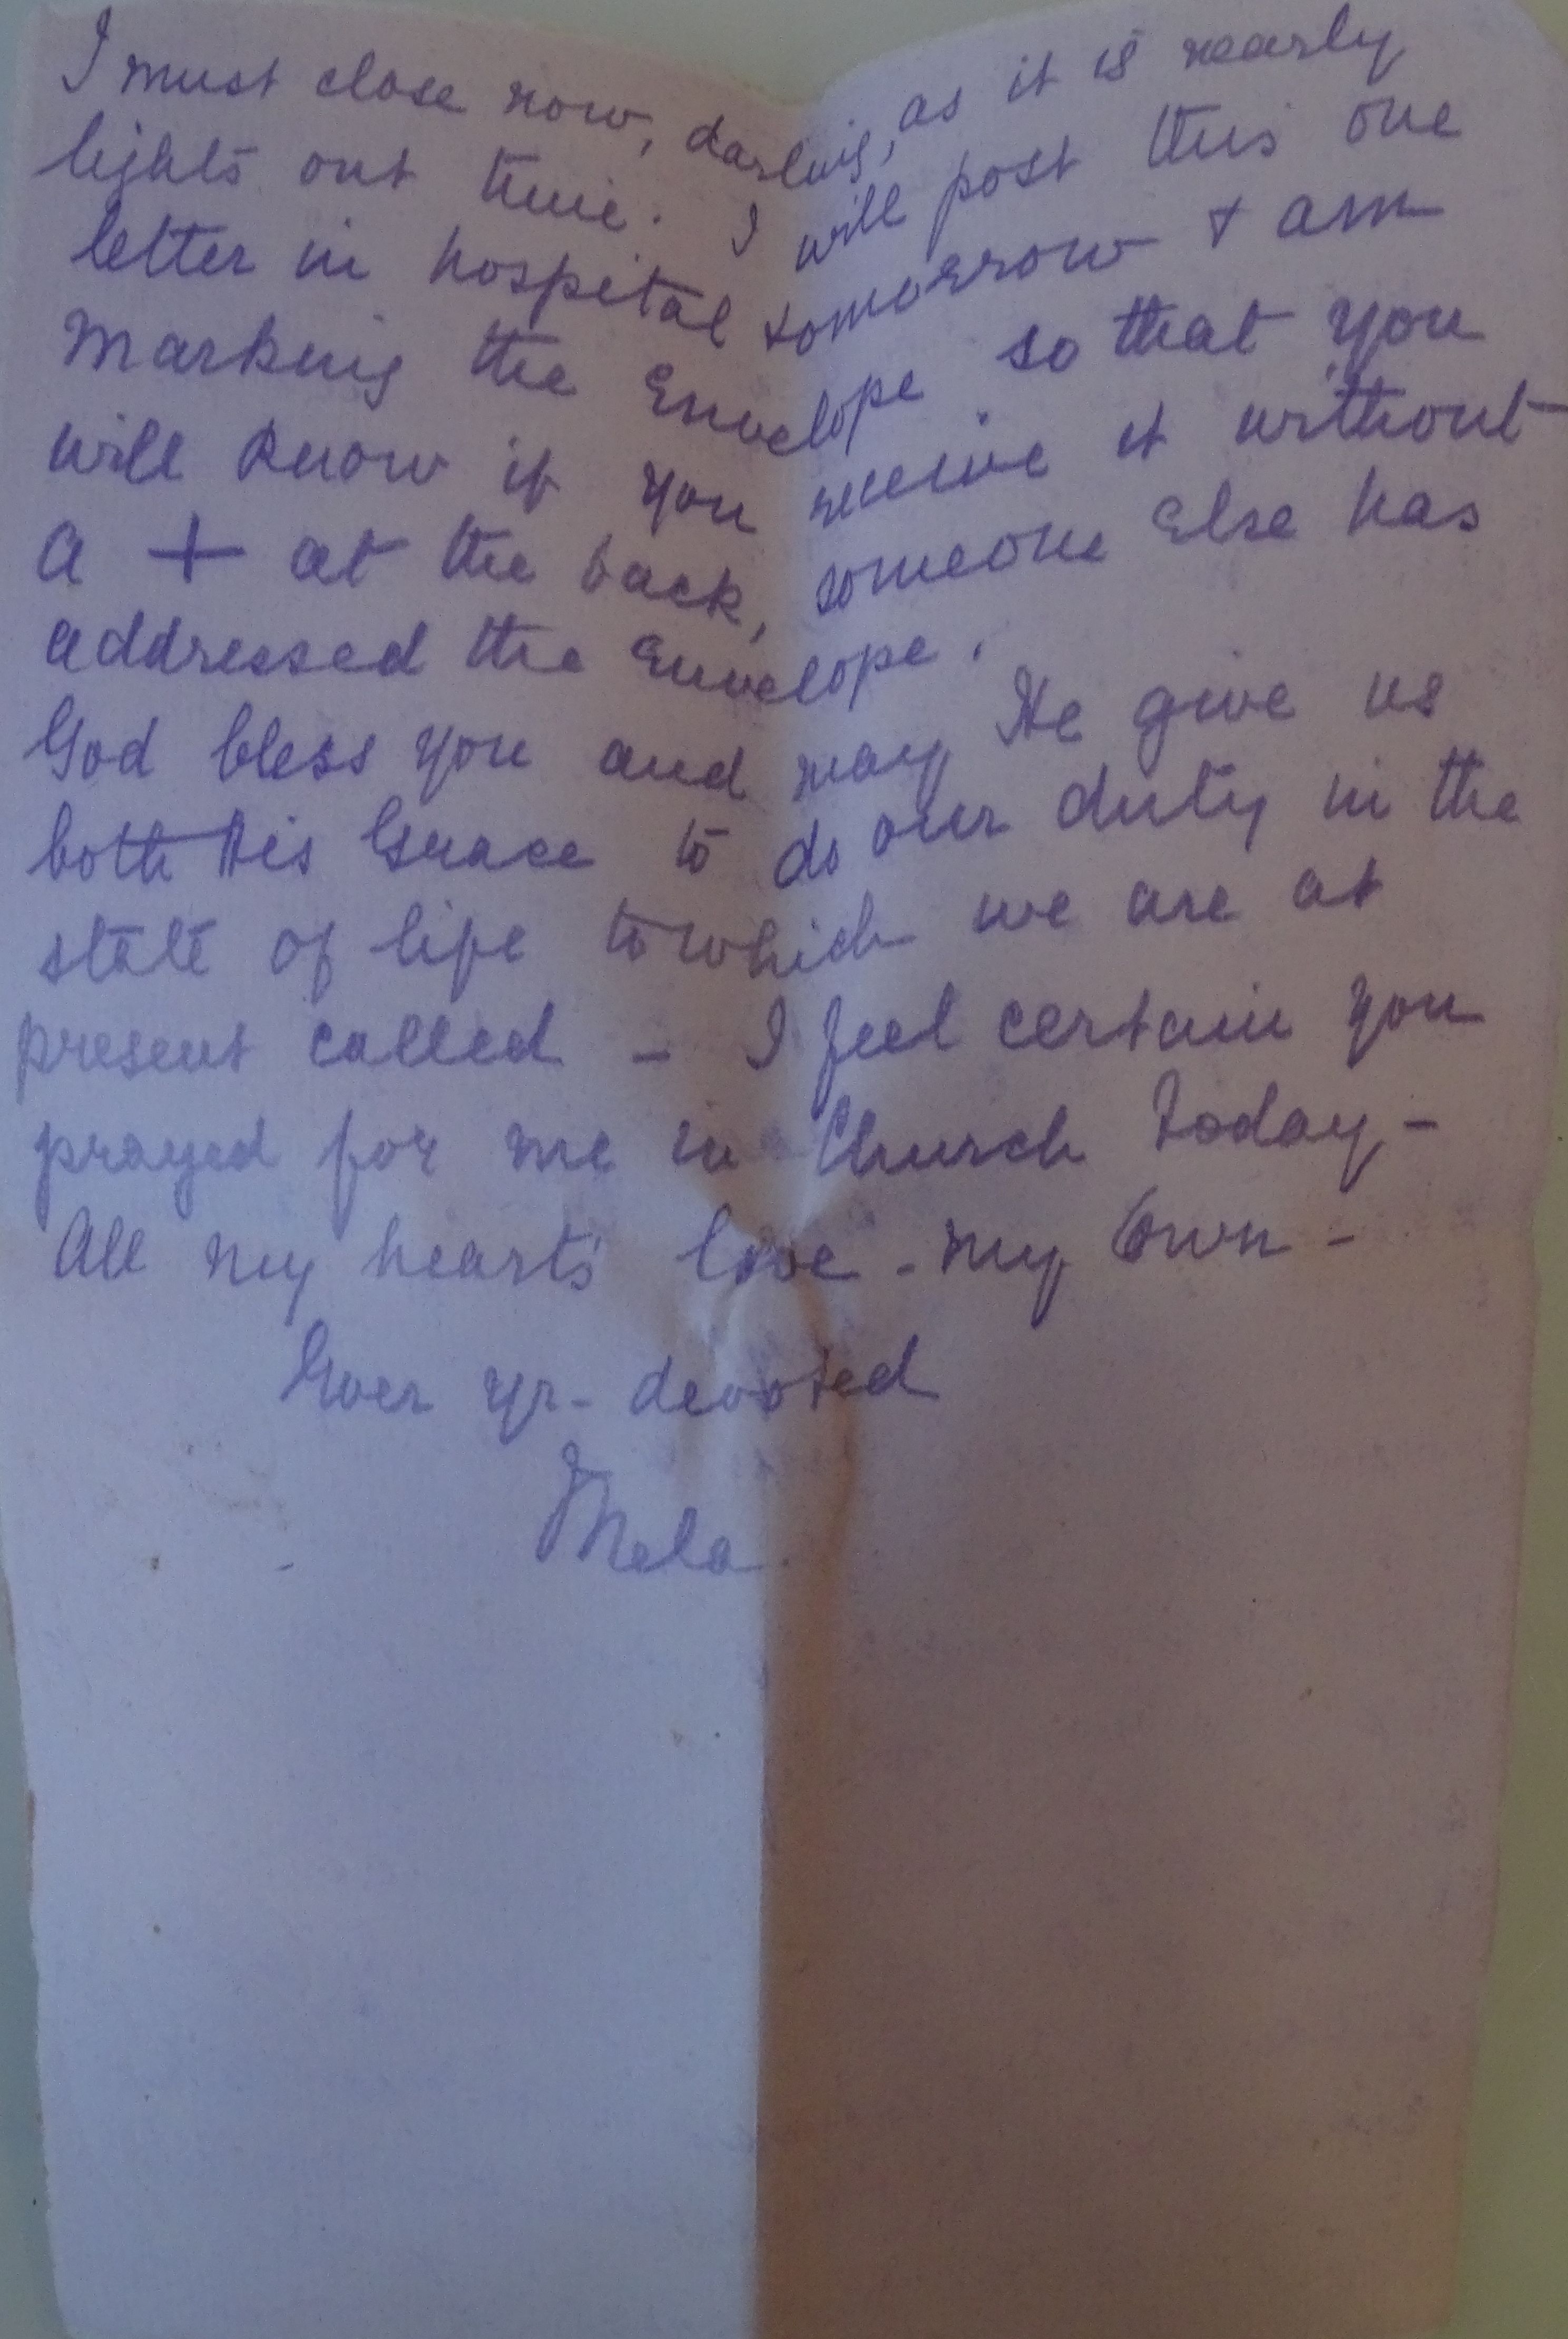 I must close now, darling, as it is nearly
lights out time. I will post this one
letter in hospital tomorrow + am
marking the Envelope so that you
will know if you receive it without
a + at the back, someone Else has
addressed the Envelope.
God bless you and may He give us
both His Grace to do our duty in the
state of life to which we are at
present called - I feel certain you
prayed for me in Church today -
All my heart's love - my Own -
Ever yr - devoted